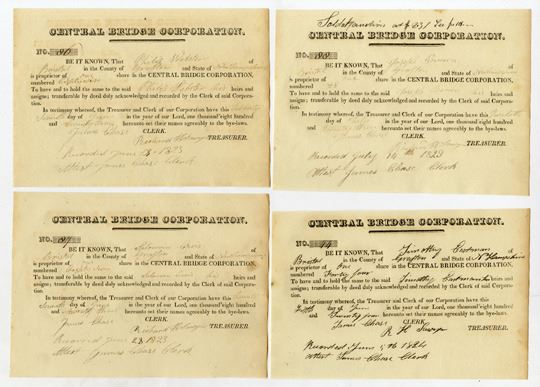 CENTRAL BRIDGE CORPORATION.
NO.
BE IT KNOWN, That of
Bristol in the County of and State of
is proprietor of one share in the CENTRAL BRIDGE CORPORATION,
numbered
To have and to hold the same to the said heirs and
assigns; transferable by deed duly acknowledged and recorded by the Clerk of said Corporation.
In testimony whereof, the Treasurer and Clerk of our Corporation have this
day of in the year of our Lord, one thousand eight hundred
and hereunto set their names agreeably to the bye-laws.
James Chase CLERK.
Richard TREASURER.
Recorded June 23 1823
Attest James Chase Clerk
Sold at $231
CENTRAL BRIDGE CORPORATION.
NO.
BE IT KNOWN, That Joseph of
Bristol in the County of and State of
is proprietor of one share in the CENTRAL BRIDGE CORPORATION,
numbered
To have and to hold the same to the said heirs and
assigns; transferable by deed duly acknowledged and recorded by the Clerk of said Corporation.
In testimony whereof, the Treasurer and Clerk of our Corporation have this
day of in the year of our Lord, one thousand eight hundred
and hereunto set their names agreeably to the bye-laws.
CLERK.
TREASURER.
Recorded July 14th 1823
Attest James Chase Clerk
CENTRAL BRIDGE CORPORATION.
NO.
BE IT KNOWN, That Solomon of
Bristol in the County of and State of
is proprietor of one share in the CENTRAL BRIDGE CORPORATION,
numbered
To have and to hold the same to the said Solomon heirs and
assigns; transferable by deed duly acknowledged and recorded by the Clerk of said Corporation.
In testimony whereof, the Treasurer and Clerk of our Corporation have this
day of in the year of our Lord, one thousand eight hundred
and hereunto set their names agreeably to the bye-laws.
James Chase CLERK.
Richard TREASURER.
Recorded June 23 1823
Attest James Chase Clerk
CENTRAL BRIDGE CORPORATION.
NO. 44
BE IT KNOWN, That Timothy Eastman of
Bristol in the County of Grafton and State of N Hampshire
is proprietor of one share in the CENTRAL BRIDGE CORPORATION,
numbered Forty four
To have and to hold the same to the said Timothy Eastman his heirs and
assigns; transferable by deed duly acknowledged and recorded by the Clerk of said Corporation.
In testimony whereof, the Treasurer and Clerk of our Corporation have this
day of June in the year of our Lord, one thousand eight hundred
and Twenty four hereunto set their names agreeably to the bye-laws.
James Chase CLERK.
R H Sawyer TREASURER.
Recorded June 5th 1824
Attest James Chase Clerk